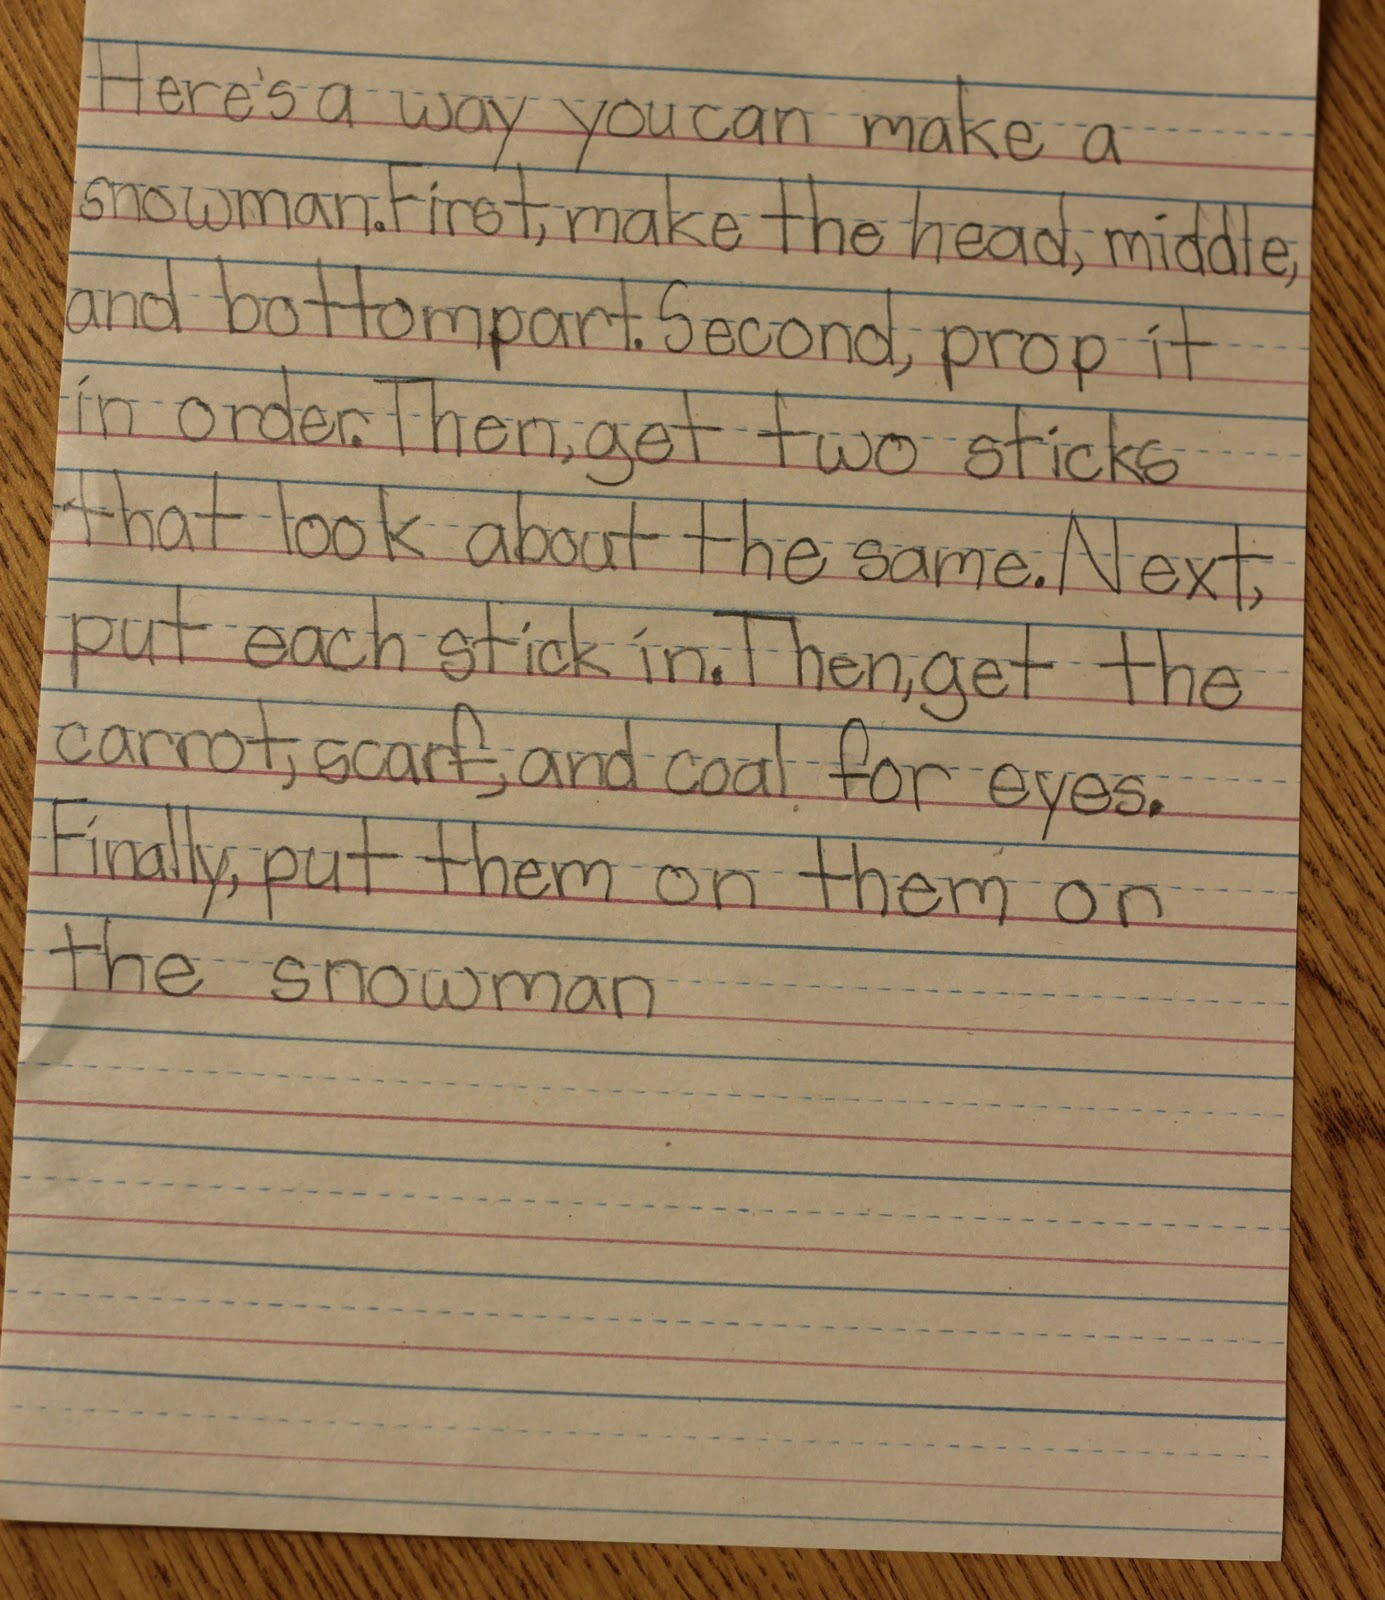 Here's a way you can make a
snowman. First, make the head, middle,
and bottom part. Second, prop it
in order. Then, get two sticks
that look about the same. Next,
put each stick in. Then, get the
carrot, scarf, and coal for eyes.
Finally, put them on them on
the snowman